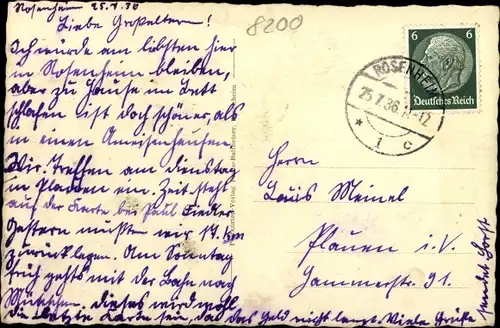 Rosenheim 25.7.36
Liebe Großeltern!
Ich würde am liebsten hier
in Rosenheim bleiben,
aber zu Hause im Bett
schlafen ist doch schöner, als
in einem Ameisenhaufen.
Wir treffen am Dienstag
in Plauen ein. Zeit steht
auf der Karte bei Paul Fiedler
Gestern mußten wir 17 km
zurücklegen. Am Sonntag
früh gehts mit der Bahn nach
München. Dieses wird wohl
die letzte Karte sein, da das Geld nicht langt. Viele Grüße
sendet Horst
8200
6 6
Deutsches Reich
ROSENHEIM
25.7.36. 11-12
* 1 c
Herrn
Louis Meinel
Plauen i. V.
Hammerstr. 91.